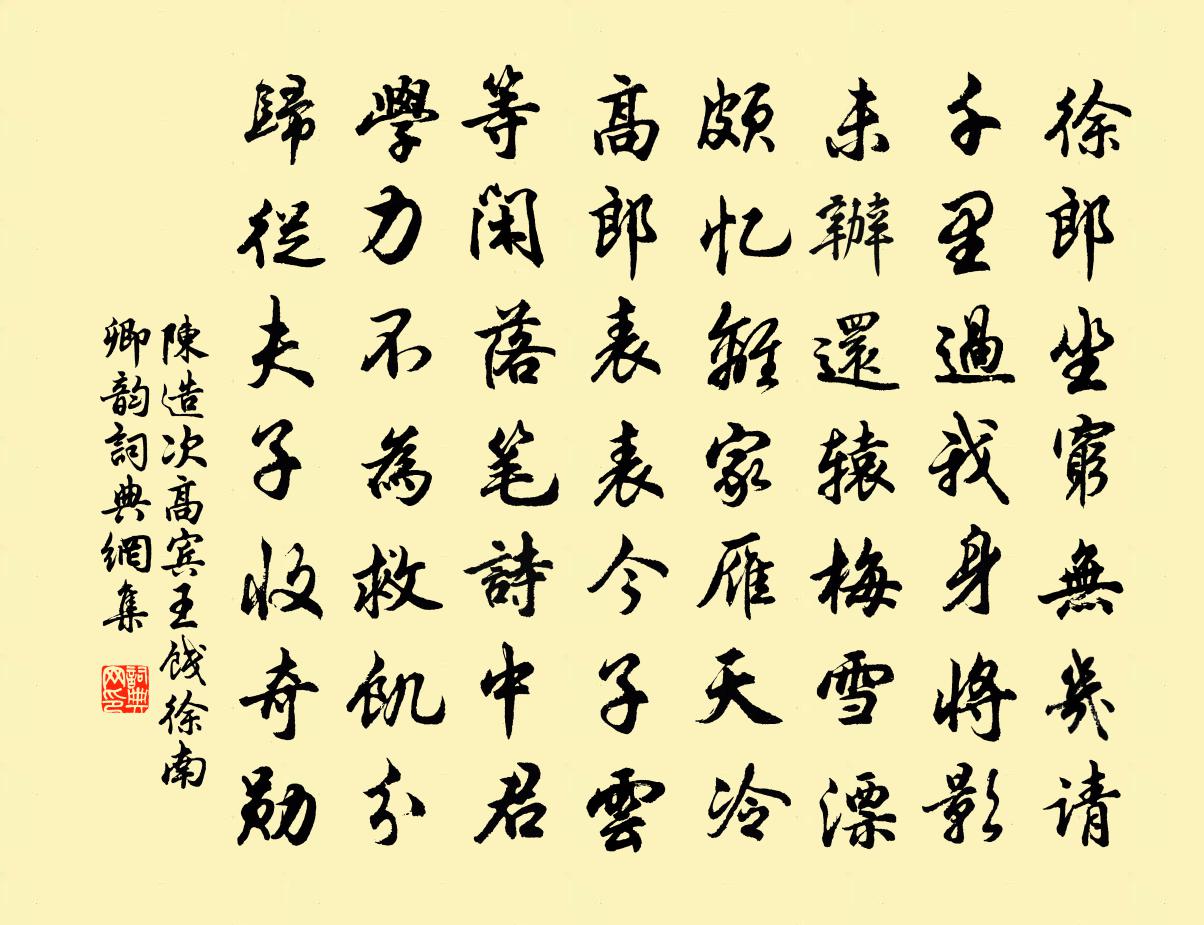 徐郎坐窮無幾请
千里過我身將影
未辦還辕梅雪漂
頗忆離家雁天冷
高郎表表今子雲
等閑落笔詩中君
學力不為救飢分
歸從夫子收奇勋
陳造次高宾王餞徐南
卿韵詞典網集
詞典网印